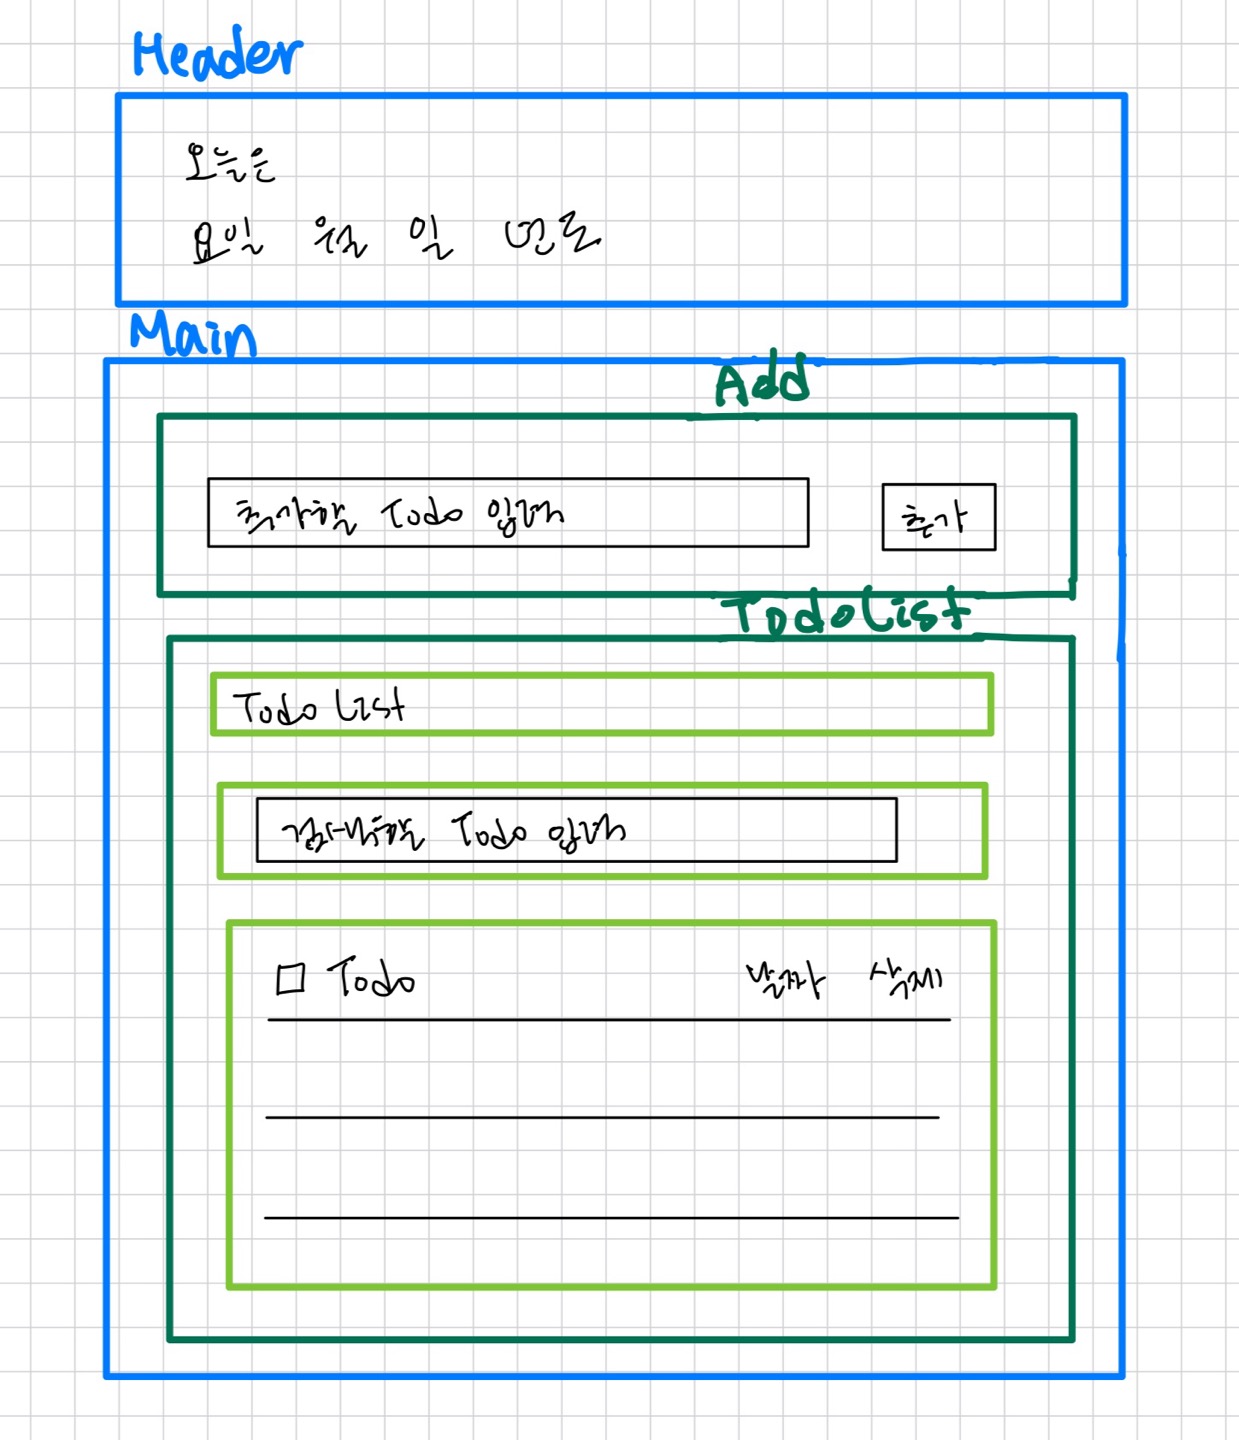 Header
오늘은
요일 월 일 년도
Main
Add
추가할 Todo 입력
추가
TodoList
Todo List
검색할 Todo 입력
Todo 날짜 삭제